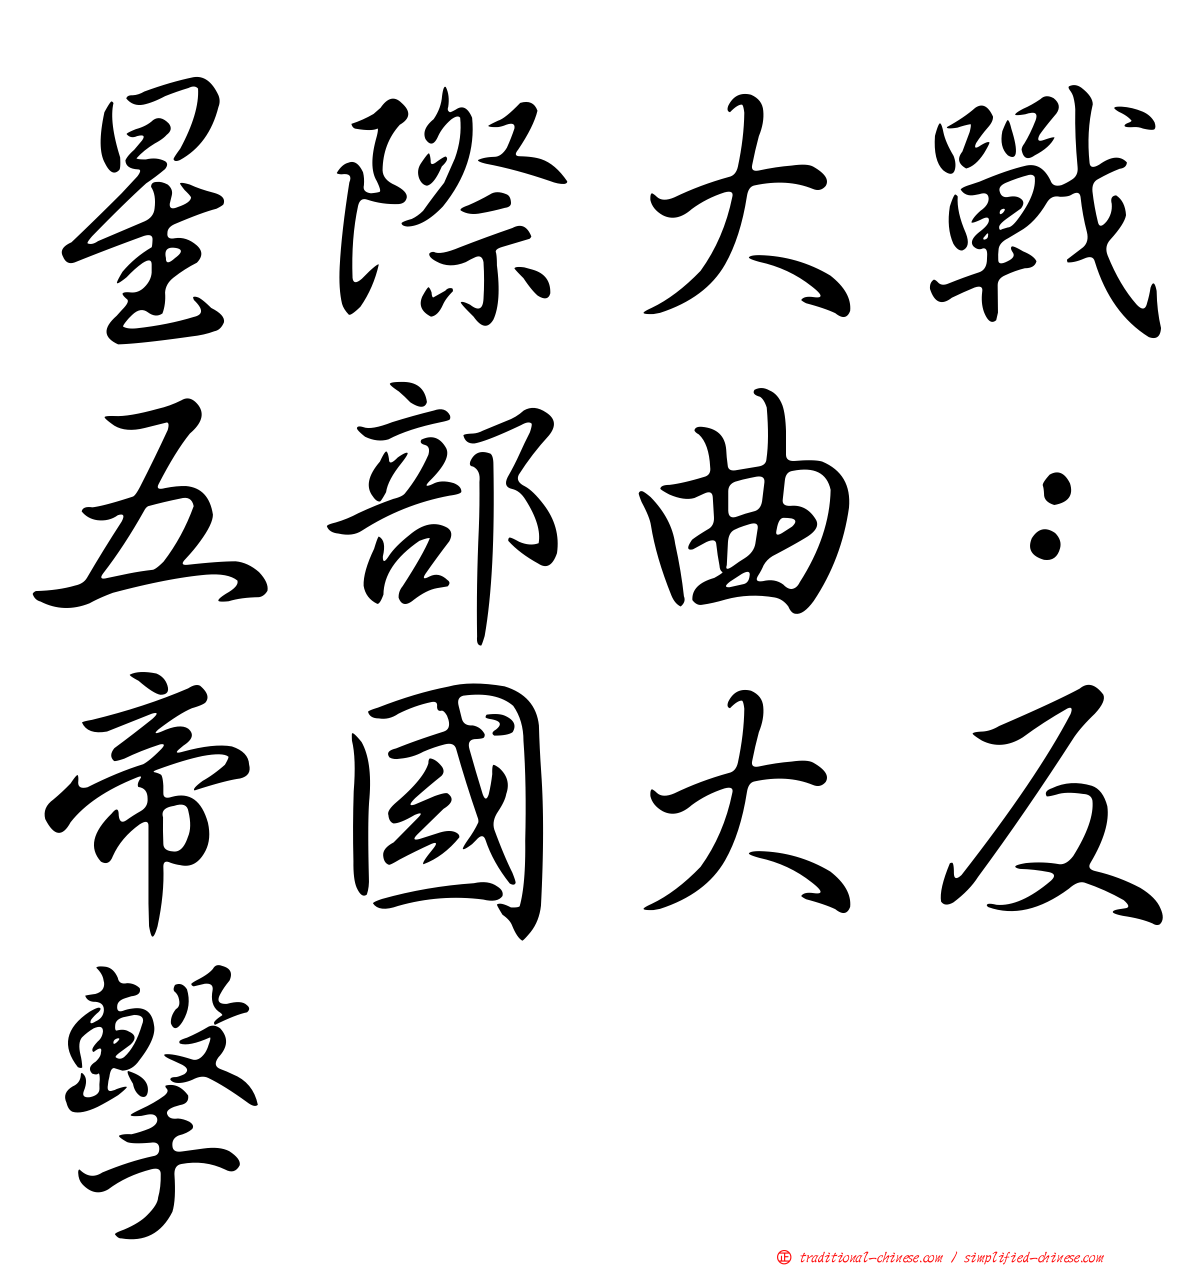 星際大戰
五部曲：
帝國大反
擊
㊣ traditional-chinese.com / simplified-chinese.com